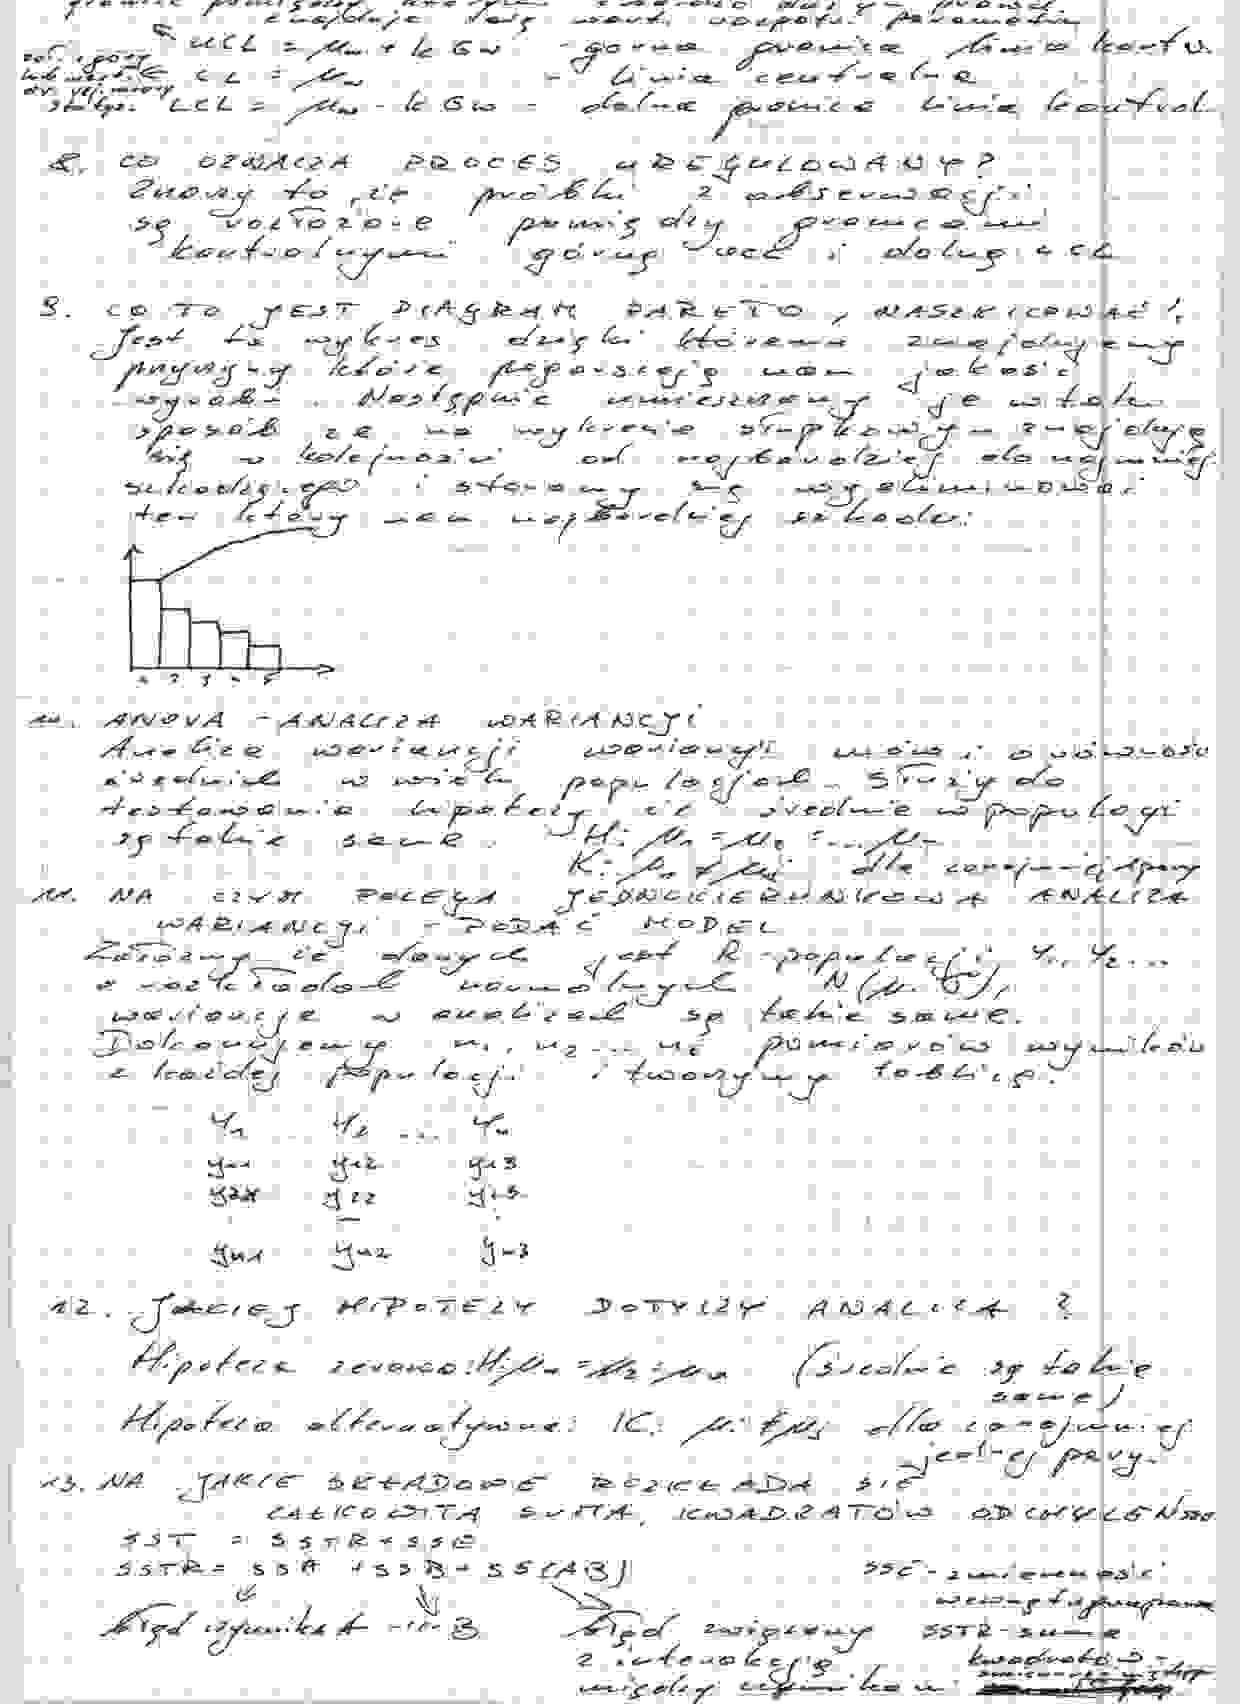 UCL = μw + k σw - górna granica linia kontr.
CL = μw - linia centralna
LCL = μw - k σw - dolna granica linia kontrol.
8. CO OZNACZA PROCES UREGULOWANY?
Znaczy to, że próbki z obserwacji
są rozłożone pomiędzy granicami
kontrolnymi górną UCL i dolną LCL
9. CO TO JEST DIAGRAM PARETO, NASZKICOWAĆ!
Jest to wykres dzięki któremu znajdujemy
przyczyny które pogarszają nam jakość
wyrobu. Następnie umieszczamy je w taki
sposób że na wykresie słupkowym znajdują
się w kolejności od najbardziej do najmniej
szkodliwego i staramy się wyeliminować
ten który nam najbardziej szkodzi.
1 2 3 4 5
10. ANOVA - ANALIZA WARIANCJI
Analiza wariancji mówi o równości
średnich w wielu populacjach. Służy do
testowania hipotezy że średnie w populacji
są takie same. H: μ1 = μ2 = ... μ
K: μi ≠ μj dla conajmniej 1 pary
11. NA CZYM POLEGA JEDNOKIERUNKOWA ANALIZA
WARIANCJI - PODAĆ MODEL
Załóżmy że danych jest R-populacji Y1, Y2 ...
o rozkładach normalnych N(μ, σ),
wariancje w analizach są takie same.
Dokonujemy n1, n2 ... pomiarów wyników
z każdej populacji i tworzymy tablicę.
Y1 Y2 ... Yn
y11 y12 y13
y21 y22 y23
yn1 yn2 yn3
12. JAKIEJ HIPOTEZY DOTYCZY ANALIZA?
Hipoteza zerowa: H: μ1 = μ2 = μn (średnie są takie
same)
Hipoteza alternatywna: K: μi ≠ μj dla conajmniej
jednej pary.
13. NA JAKIE SKŁADOWE ROZKŁADA SIĘ
CAŁKOWITA SUMA KWADRATÓW ODCHYLEŃ
SST = SSTR + SSE
SSTR = SSA + SSB + SS(AB)
SSE - zmienność
wewnątrzgrupowa
błąd czynnika A -"- B
błąd związany SSTR - suma
z interakcją kwadratów -
między czynnikami